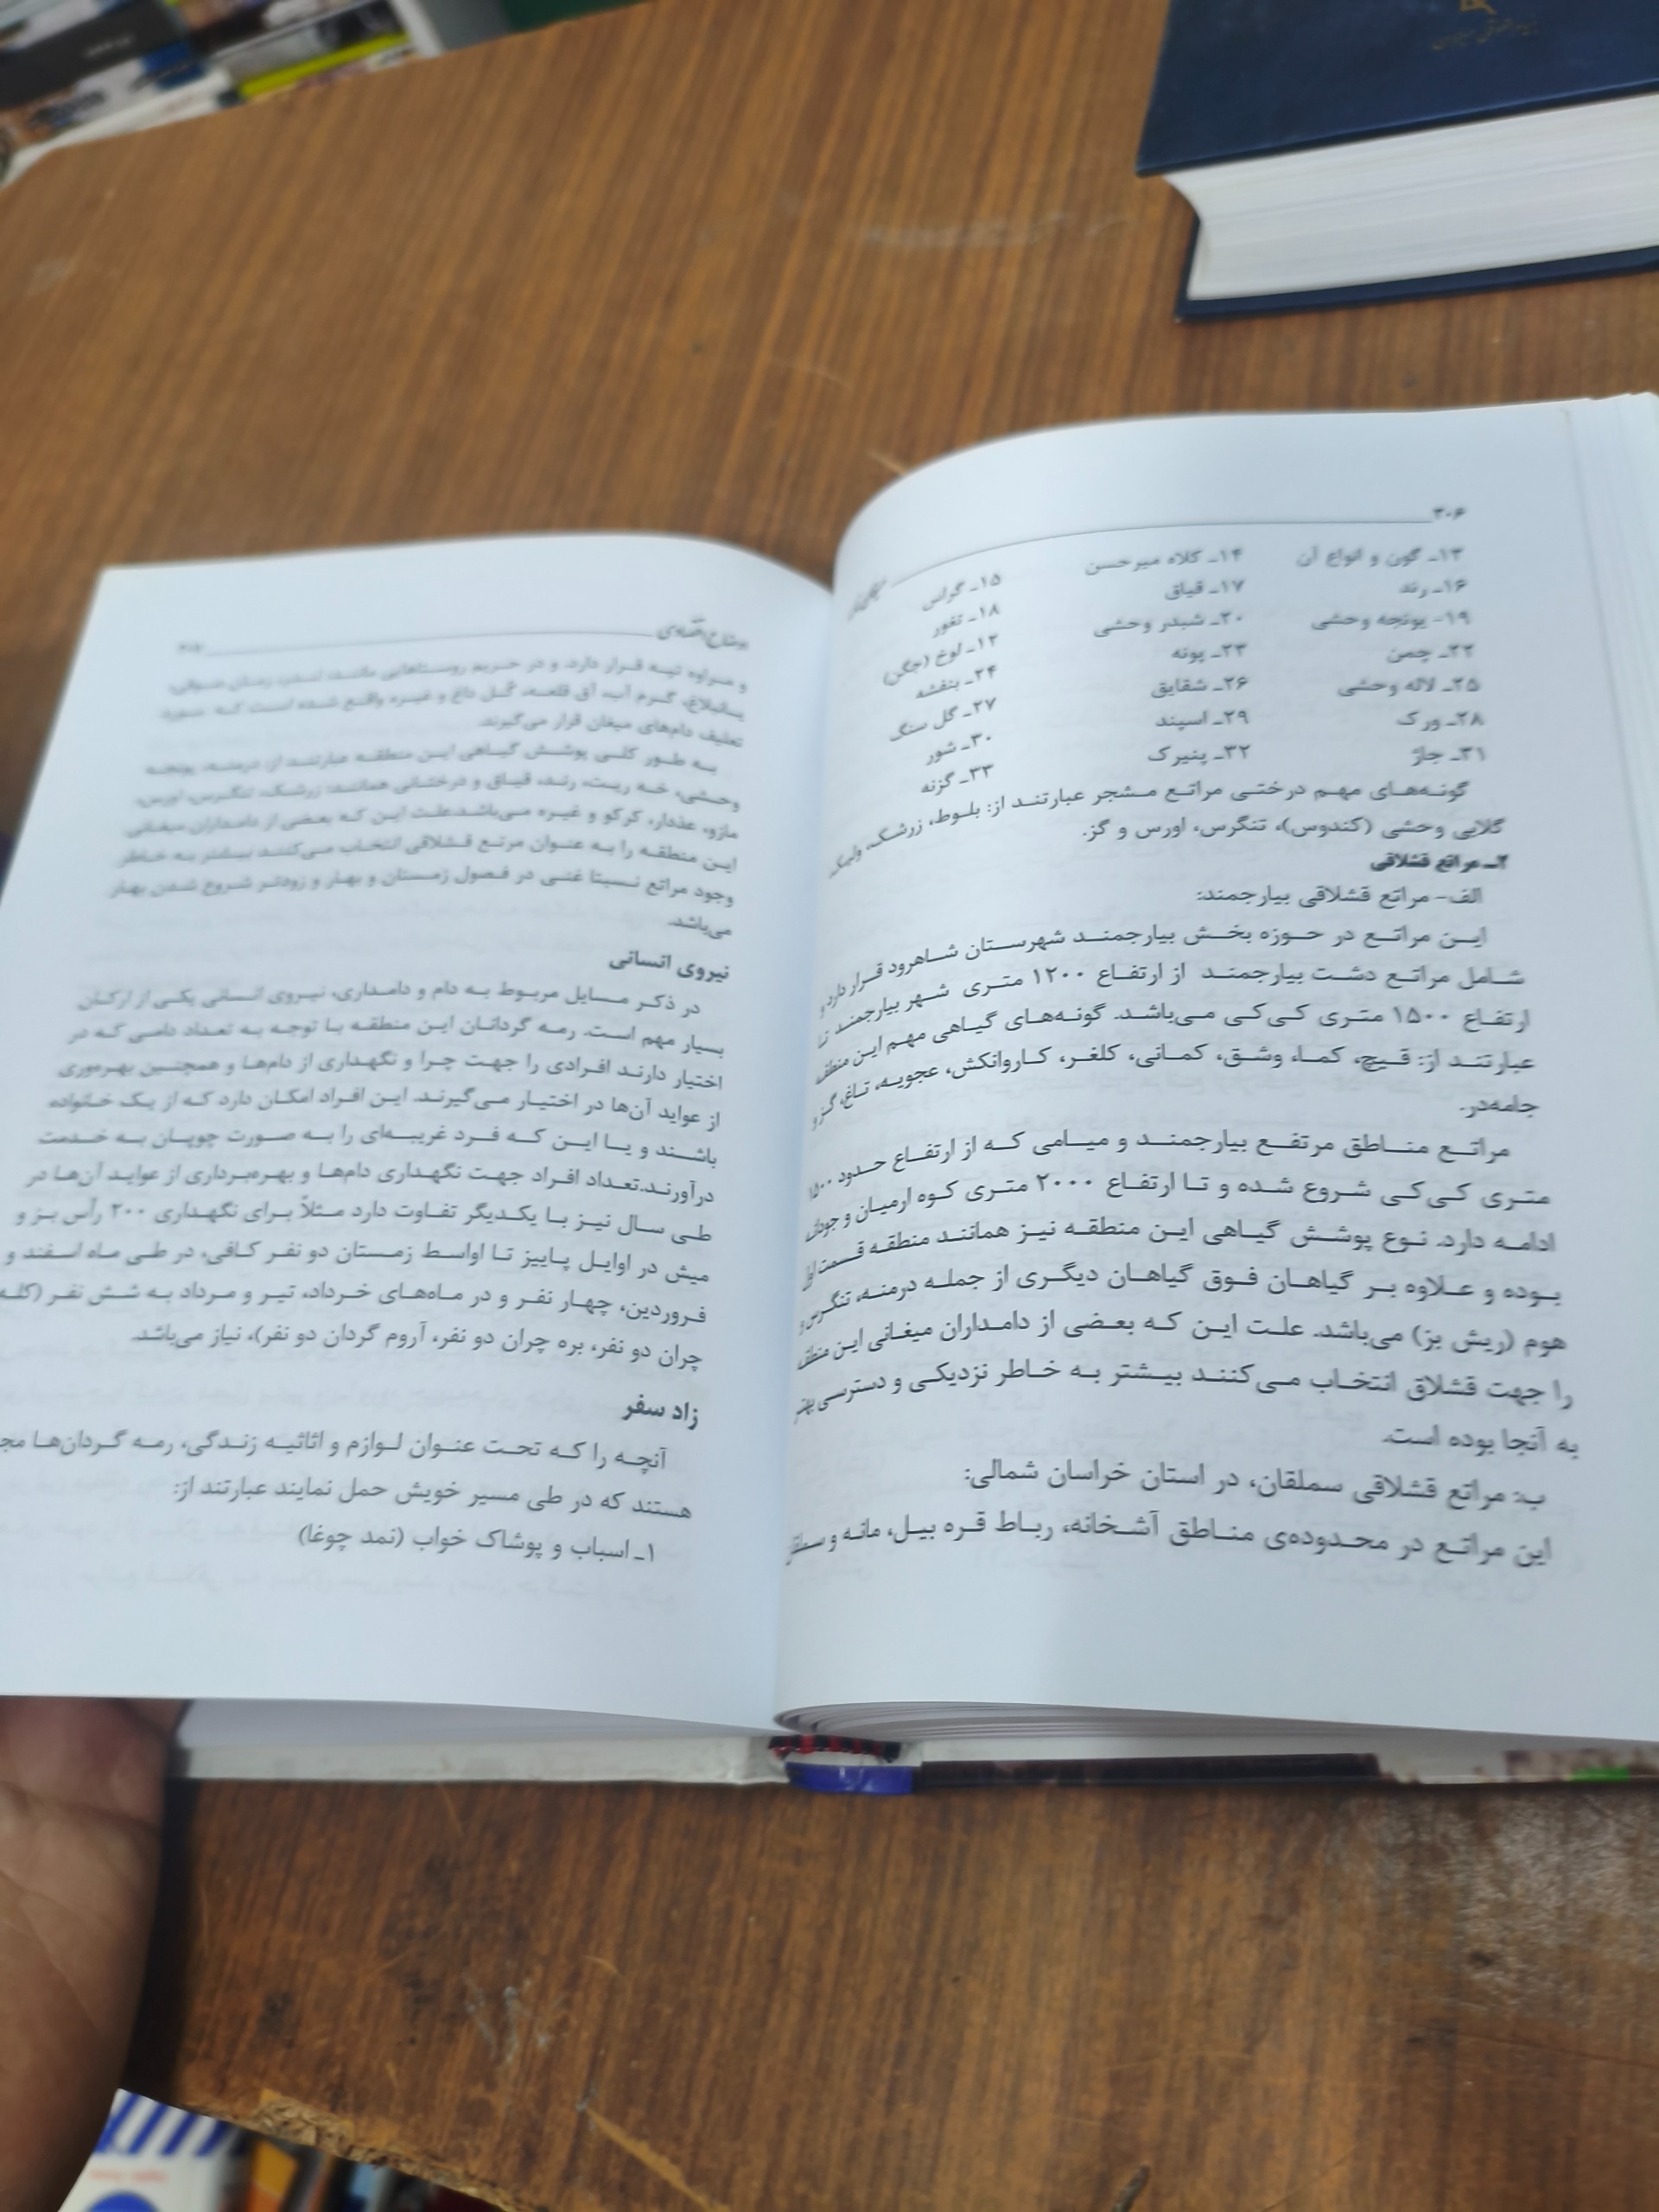 ۳۰۶
۱۳ـ گون و انواع آن ۱۴ـ کلاه میرحسن ۱۵ـ گراس
۱۶ـ رند ۱۷ـ قیاق ۱۸ـ تغور
۱۹ـ یونجه وحشی ۲۰ـ شبدر وحشی ۱۲ـ لوخ (جگن)
۲۲ـ چمن ۲۳ـ پونه ۲۴ـ بنفشه
۲۵ـ لاله وحشی ۲۶ـ شقایق ۲۷ـ گل سنگ
۲۸ـ ورک ۲۹ـ اسپند ۳۰ـ شور
۳۱ـ جاژ ۳۲ـ پنیرک ۳۳ـ گزنه
گونه‌های مهم درختی مراتع مشجر عبارتند از: بلوط، زرشک، ولیک،
گلابی وحشی (کندوس)، تنگرس، اورس و گز.
۲ـ مراتع قشلاقی
الف- مراتع قشلاقی بیارجمند:
این مراتع در حوزه بخش بیارجمند شهرستان شاهرود قرار دارد و
شامل مراتع دشت بیارجمند از ارتفاع ۱۲۰۰ متری شهر بیارجمند تا
ارتفاع ۱۵۰۰ متری کی‌کی می‌باشد. گونه‌های گیاهی مهم این منطقه
عبارتند از: قیچ، کما، وشق، کمانی، کلغر، کاروانکش، عجویه، تاغ، گز و
جامه‌در.
مراتع مناطق مرتفع بیارجمند و میامی که از ارتفاع حدود ۱۵۰۰
متری کی‌کی شروع شده و تا ارتفاع ۲۰۰۰ متری کوه ارمیان و
ادامه دارد. نوع پوشش گیاهی این منطقه نیز همانند منطقه قسمت اول
بوده و علاوه بر گیاهان فوق گیاهان دیگری از جمله درمنه، تنگرس و
هوم (ریش بز) می‌باشد. علت این که بعضی از دامداران میغانی این منطقه
را جهت قشلاق انتخاب می‌کنند بیشتر به خاطر نزدیکی و دسترسی بهتر
به آنجا بوده است.
ب: مراتع قشلاقی سملقان، در استان خراسان شمالی:
این مراتع در محدوده‌ی مناطق آشخانه، رباط قره بیل، مانه و سملقان
اوضاع اقتصادی ۳۰۷
و مراوه تپه قرار دارد. و در حریم روستاهایی مانند:
یانبلاغ، گرم آب، آق قلعه، گل داغ و غیره واقع شده است که مورد
تعلیف دام‌های میغان قرار می‌گیرند.
به طور کلی پوشش گیاهی این منطقه عبارتند از: درمنه، یونجه
وحشی، خه ریت، رند، قیاق و درختانی همانند: زرشک، تنگرس، اورس،
مازو، عذدار، کرکو و غیره می‌باشد.علت این که بعضی از دامداران میغانی
این منطقه را به عنوان مرتع قشلاقی انتخاب می‌کنند بیشتر به خاطر
وجود مراتع نسبتا غنی در فصول زمستان و بهار و زودتر شروع شدن بهار
می‌باشد.
نیروی انسانی
در ذکر مسایل مربوط به دام و دامداری، نیروی انسانی یکی از ارکان
بسیار مهم است. رمه گردانان این منطقه با توجه به تعداد دامی که در
اختیار دارند افرادی را جهت چرا و نگهداری از دام‌ها و همچنین بهره‌وری
از عواید آن‌ها در اختیار می‌گیرند. این افراد امکان دارد که از یک خانواده
باشند و یا این که فرد غریبه‌ای را به صورت چوپان به خدمت
درآورند.تعداد افراد جهت نگهداری دام‌ها و بهره‌برداری از عواید آن‌ها در
طی سال نیز با یکدیگر تفاوت دارد مثلاً برای نگهداری ۲۰۰ رأس بز و
میش در اوایل پاییز تا اواسط زمستان دو نفر کافی، در طی ماه اسفند و
فروردین، چهار نفر و در ماه‌های خرداد، تیر و مرداد به شش نفر (کله
چران دو نفر، بره چران دو نفر، آروم گردان دو نفر)، نیاز می‌باشد.
زاد سفر
آنچه را که تحت عنوان لوازم و اثاثیه زندگی، رمه گردان‌ها
هستند که در طی مسیر خویش حمل نمایند عبارتند از:
۱ـ اسباب و پوشاک خواب (نمد چوغا)